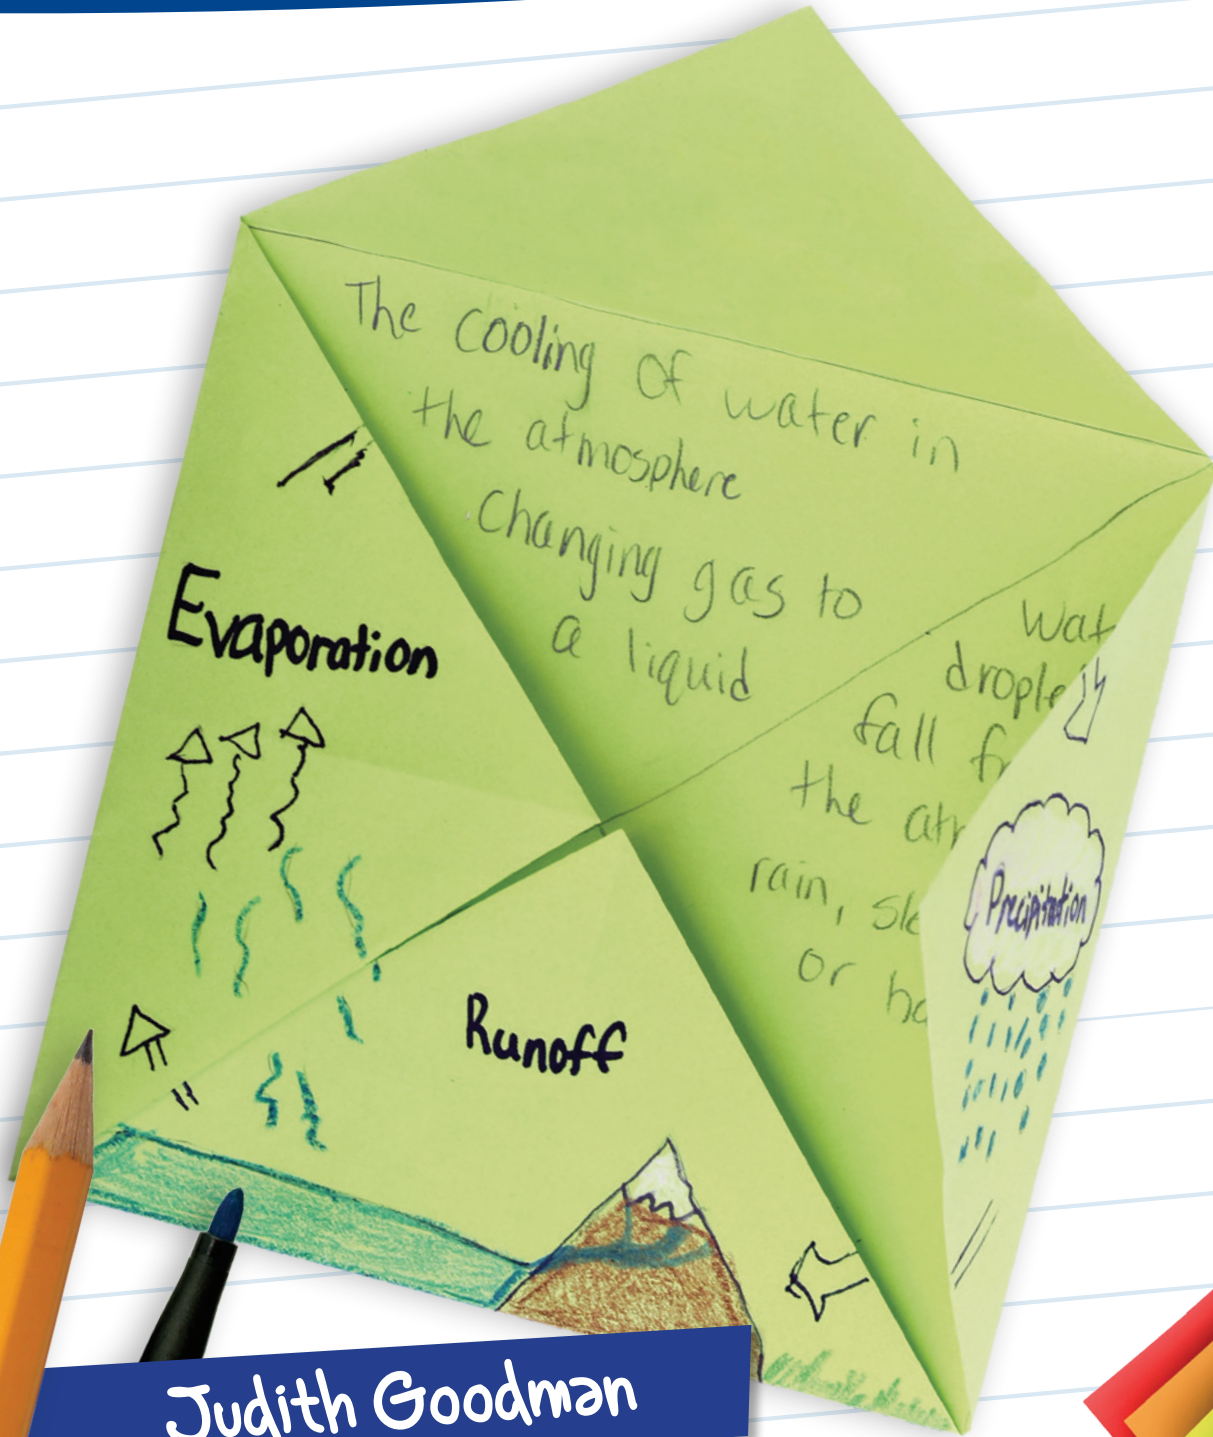 The cooling of water in
the atmosphere
Changing gas to
a liquid
Evaporation
fall
the
rain,
or
Precipitation
Runoff
Judith Goodman